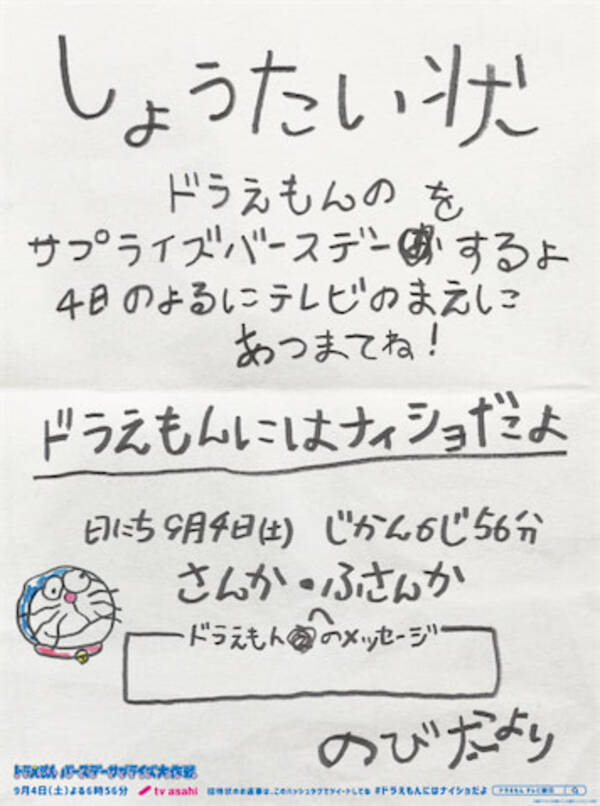 しょうたい状
ドラえもんの を
サプライズバースデーするよ
4日のよるにテレビのまえに
あつまてね!
ドラえもんにはナイショだよ
日にち 9月4日(土) じかん6じ56分
さんか・ふさんか
ドラえもんへのメッセージ
のび太より
ドラえもん バースデーサプライズ大作戦
9月4日(土)よる6時56分 tv asahi 招待状のお返事は、このハッシュタグでツイートしてね #ドラえもんにはナイショだよ ドラえもん テレビ朝日